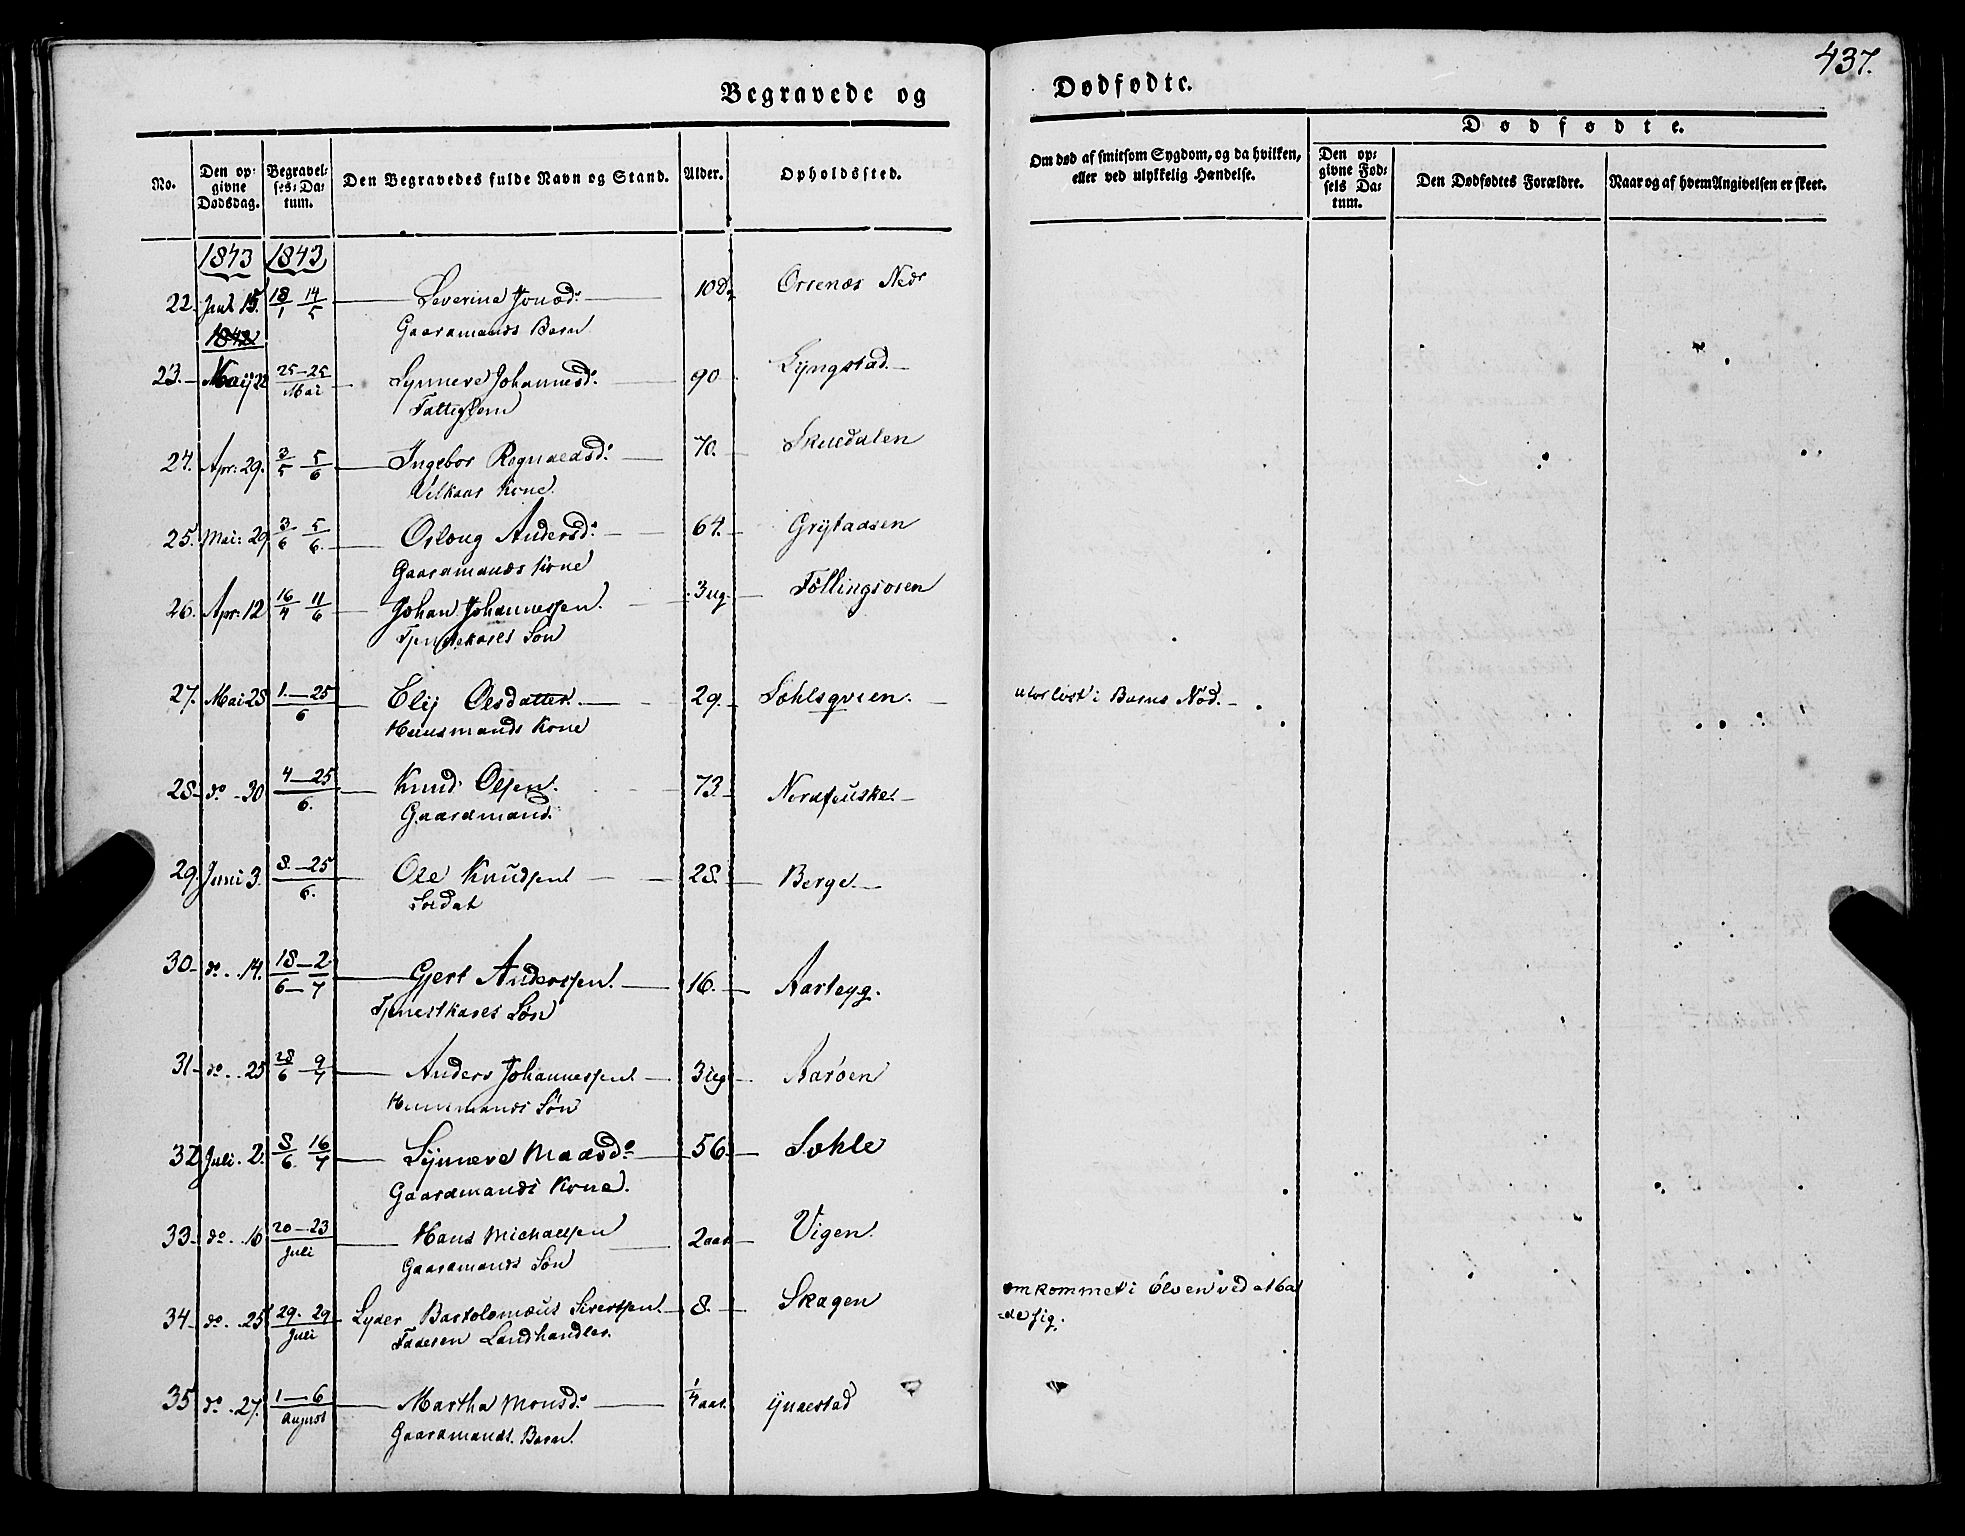 437.
Begravede og Dødfødte.
No.
Den op-
givne
Dødsdag.
Begravel-
ses-Da-
tum.
Den Begravedes fulde Navn og Stand.
Alder.
Opholdssted.
Om død af smitsom Sygdom, og da hvilken,
eller ved ulykkelig Hændelse.
Dødfødte.
Den op-
givne Fød-
sels Da-
tum.
Den Dødfødtes Forældre.
Naar og af hvem Angivelsen er skeet.
1843 1843
22. 15. 18/1 14/5 Severine Jonsd. 10 d. Orsenæs Nedr
Gaardmands Barn
1842
23. Maij 22 25-25 Mai Synneve Johannesd. 90 Lyngstad.
Fattiglem
24. Apr: 29. 3/5 5/6 Ingebor Rognaldsd. 70. Skuedalen
Vilkaar Kone.
25. Mai: 29 3/6 5/6. Oslaug Andersd. 64. Grytaasen
Gaardmands Kone
26. Apr: 12 16/4 11/6 Johan Johannessen. 3 ug. Föllingsosen
Tjenestekarls Søn
27. Mai 28 1.-25/6 Elij Olsdatter. 29. Sohlsqvien. uforløst i Barns Nød.
Huusmands Kone
28 do 30 4-25/6. Knud Olsen. 73. Nordfeuskel
Gaardmand.
29. Juni 3. 8.-25/6. Ole Knudsen 28. Berge.
Soldat
30 do. 14. 18/6-2/7 Gjert Anderssen. 16. Aarteyg.
Tjenestkarls Søn
31 do. 25 28/6 9/7 Anders Johannessen. 3 ug Aarøen
Huusmands Søn
32 Juli. 2. 8/6. 16/7 Synneve Madsd. 56. Sohle
Gaardmands Kone.
33 do. 16 20-23 Juli Hans Michaelsen 2 aar Vigen.
Gaardmands Søn
34 do. 25 29. 29 Juli Lyder Bartolomæus Sivertsen. 8. Skagen omkommet i Elven ved at ba
Faderen Landhandler. -de sig.
35 do. 27. 1-6 August Martha Monsd. 1/4 aar. Yndestad
Gaardmands. Barn.